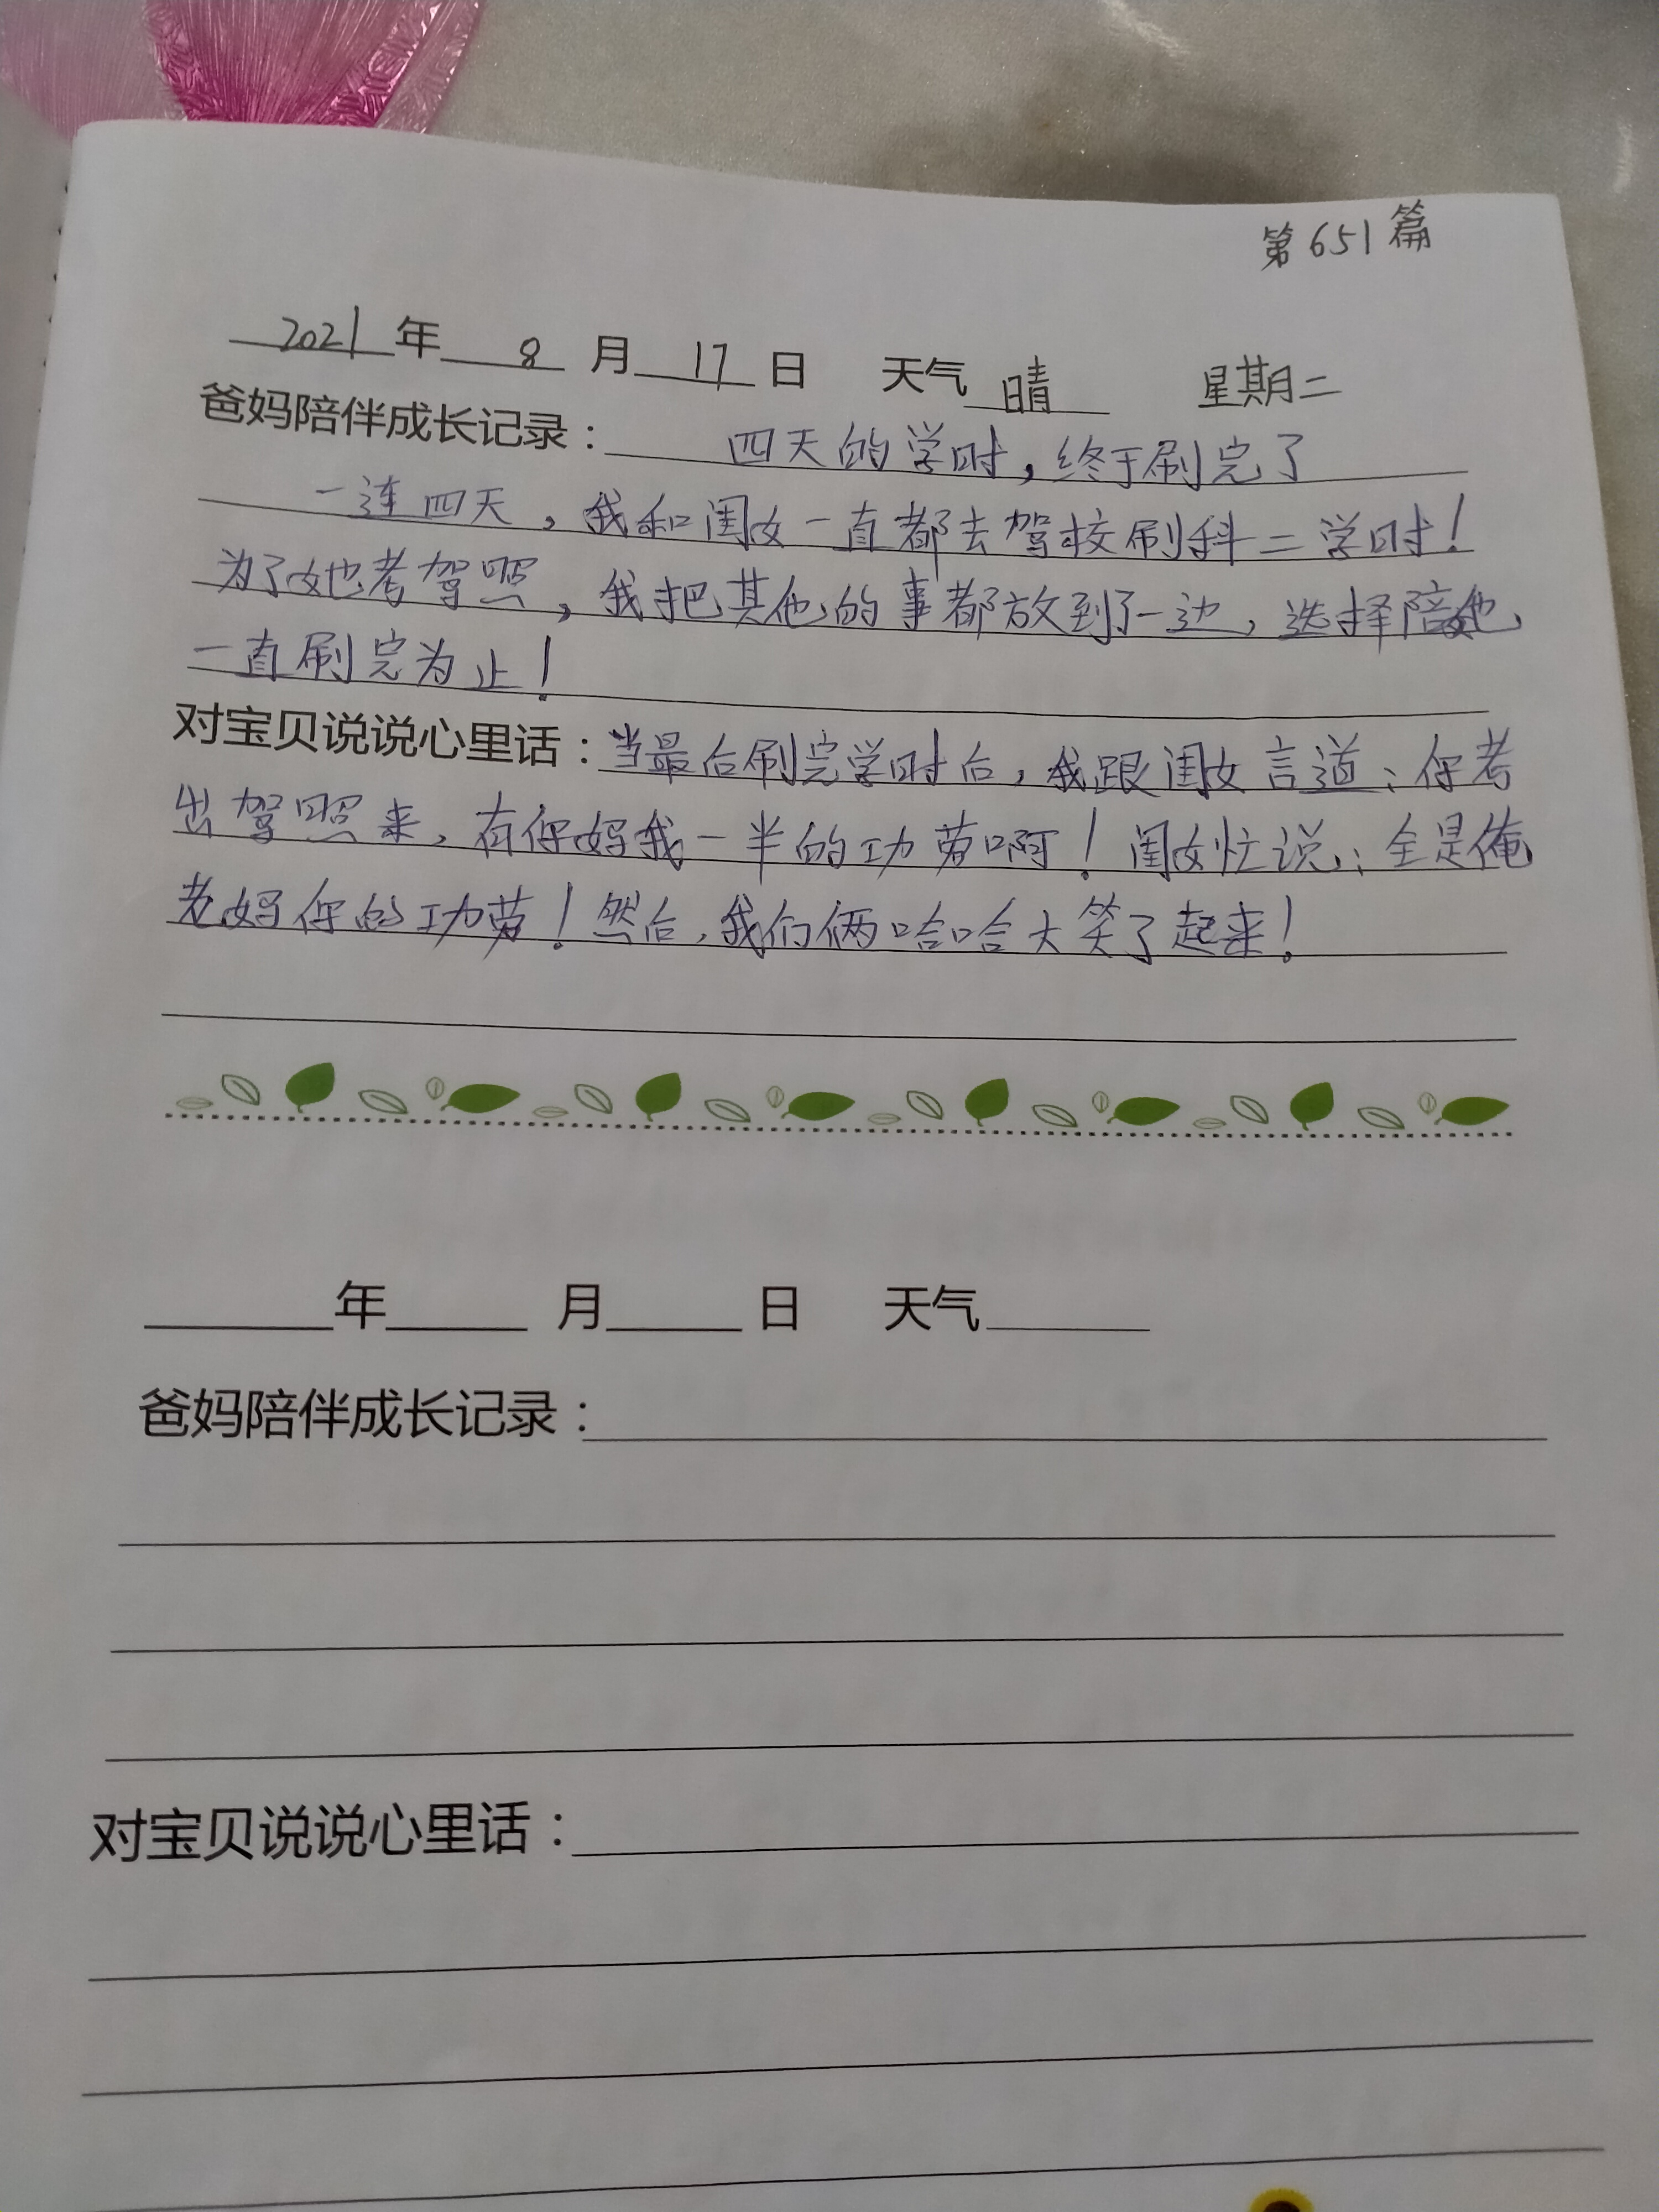 第651篇
2021年 8 月 17 日 天气 晴 星期二
爸妈陪伴成长记录： 四天的学时，终于刷完了
一连四天，我和闺女一直都去驾校刷科二学时！
为了她考驾照，我把其他的事都放到了一边，选择陪她
一直刷完为止！
对宝贝说说心里话：当最后刷完学时后，我跟闺女言道：你考
出驾照来，有你妈我一半的功劳啊！闺女忙说：全是俺
老妈你的功劳！然后，我们俩哈哈大笑了起来！
年 月 日 天气
爸妈陪伴成长记录：
对宝贝说说心里话：